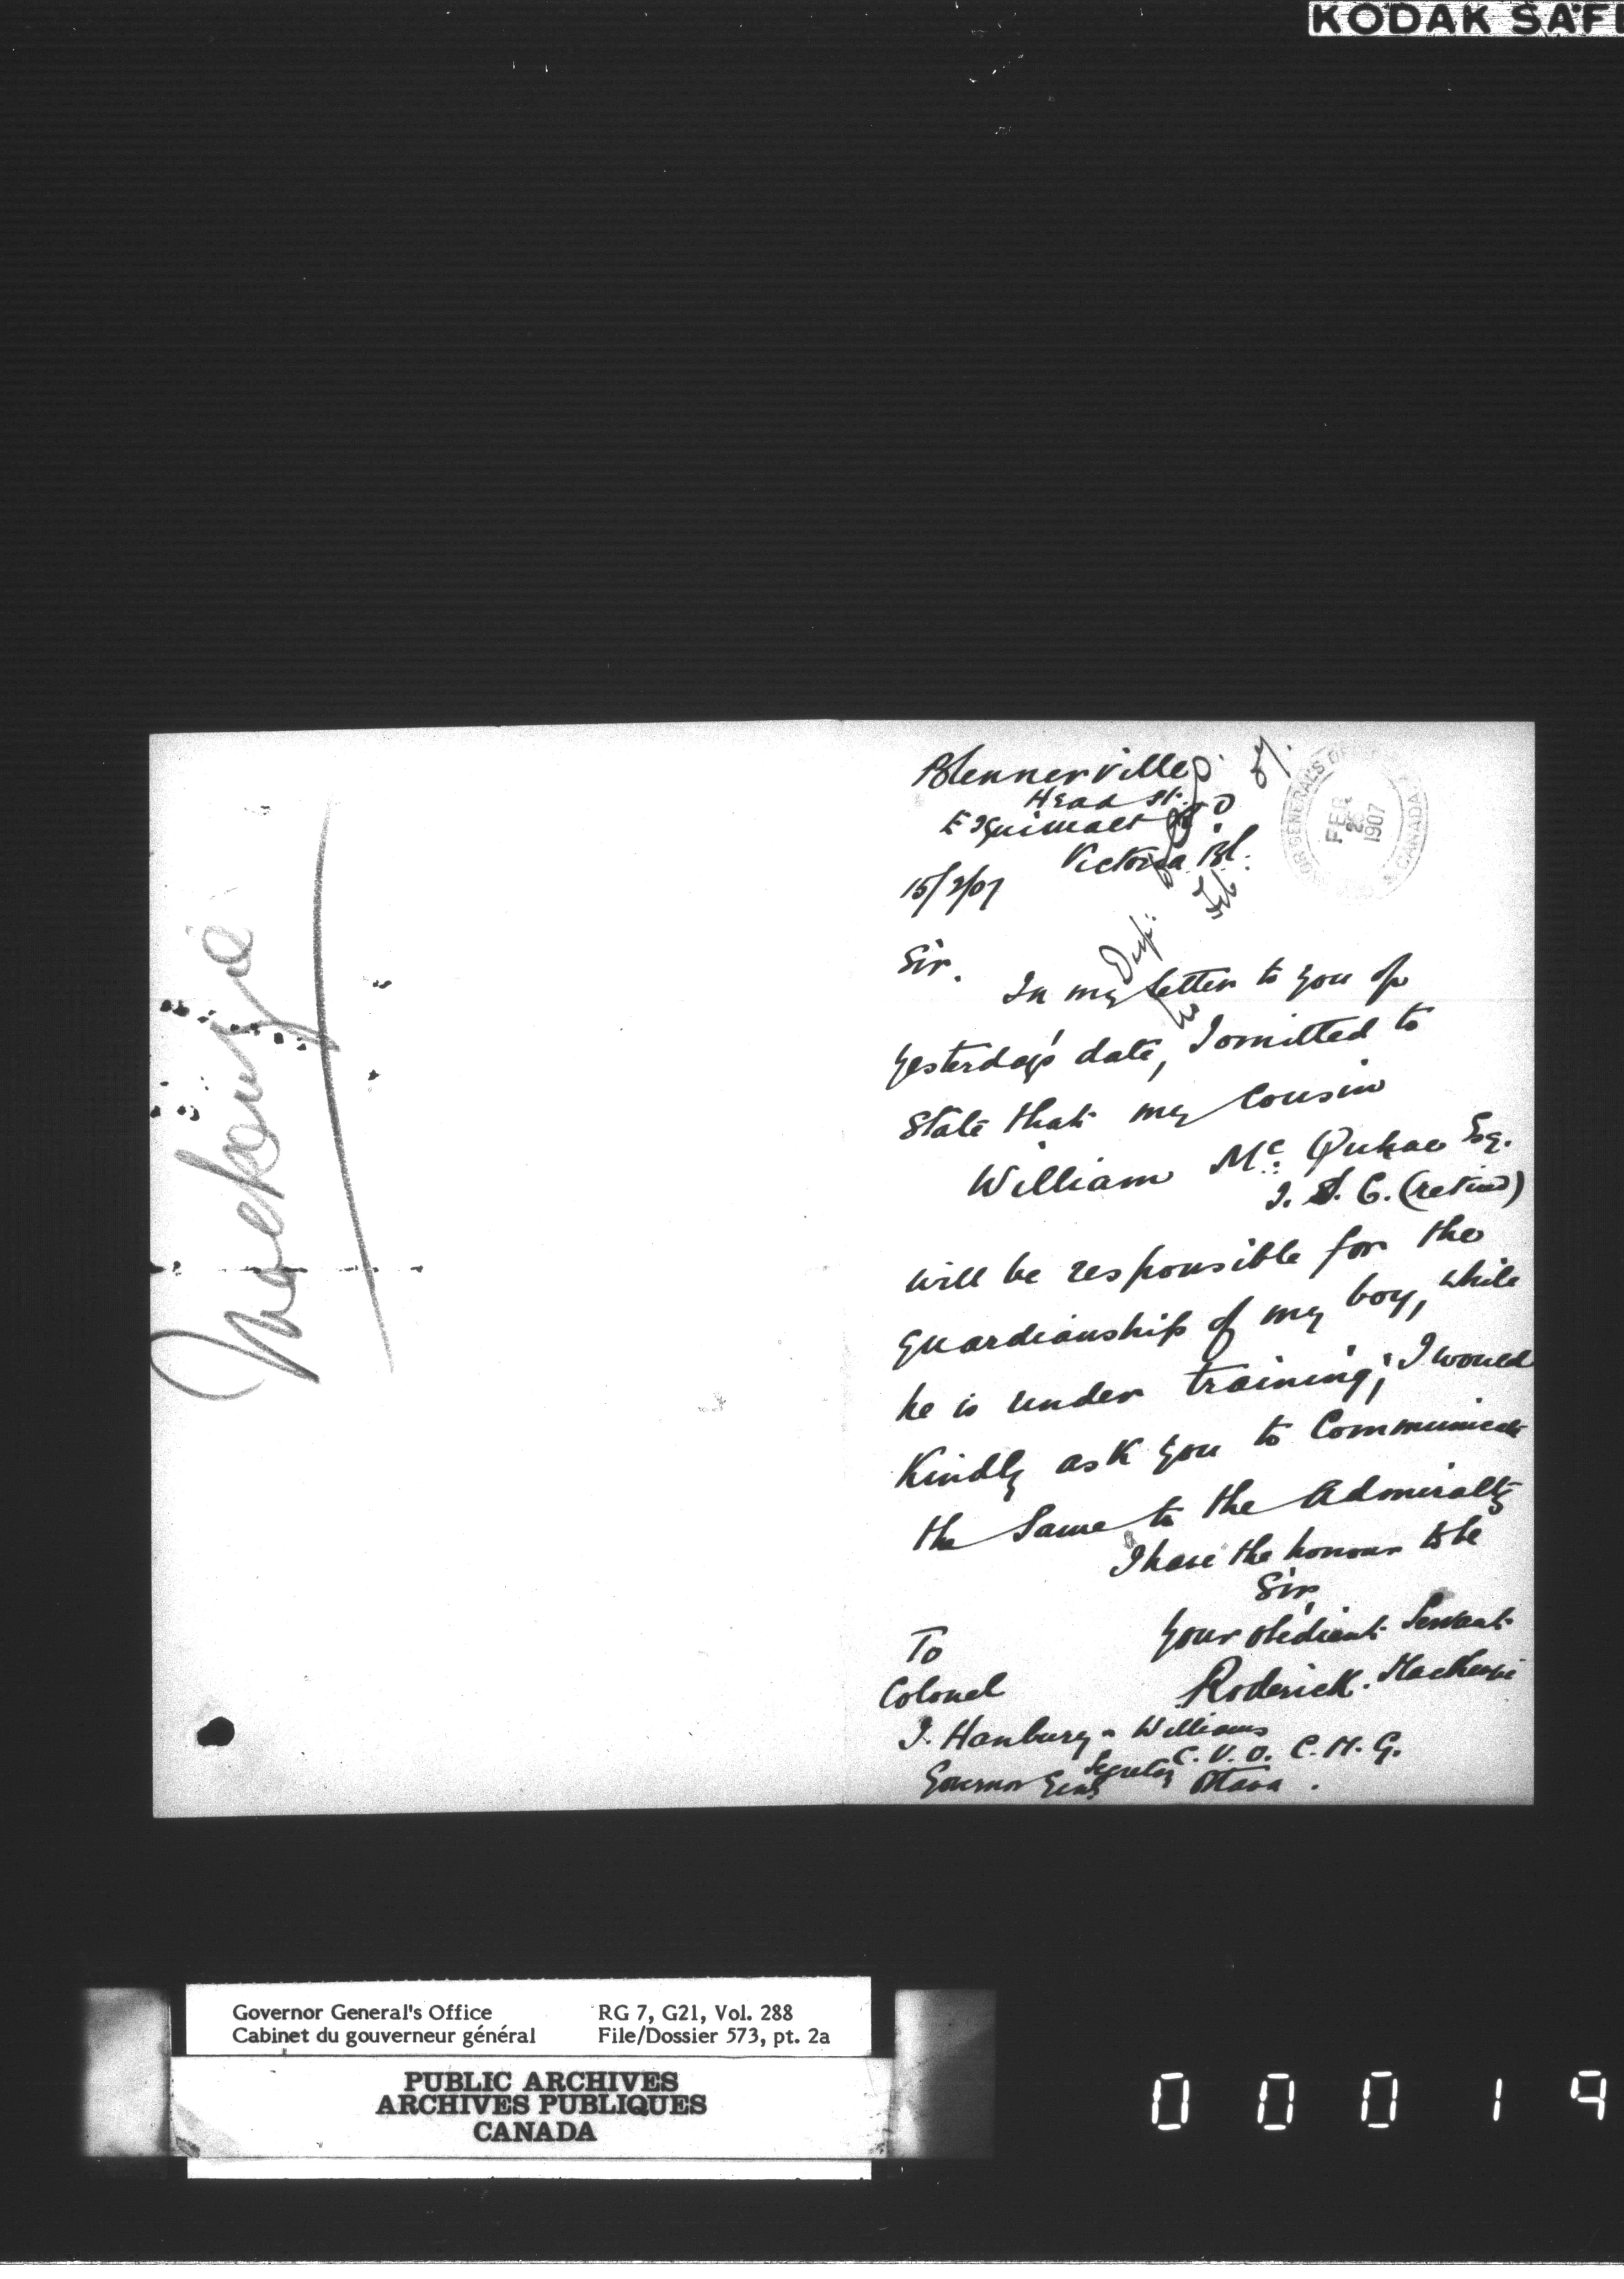 KODAK SAFE
Mackenzie
Blennerville
Head St.
Esquimalt
Victoria BC.
15/2/07
GENERAL'S
FEB
1907
CANADA
Sir.
In my letter to you of
yesterday's date, I omitted to
State that my Cousin
William Mc. Esq.
I. S. C. (retired)
will be responsible for the
guardianship of my boy, while
he is under training; I would
Kindly ask you to Communicate
the Same to the Admiralty
I have the honour to be
Sir,
Your obedient Servant
Roderick. MacKenzie
To
Colonel
J. Hanbury-Williams
C. V. O. C. M. G.
Governor Genls Secretary Ottawa.
Governor General's Office RG 7, G21, Vol. 288
Cabinet du gouverneur général File/Dossier 573, pt. 2a
PUBLIC ARCHIVES
ARCHIVES PUBLIQUES
CANADA
0 0 0 1 9